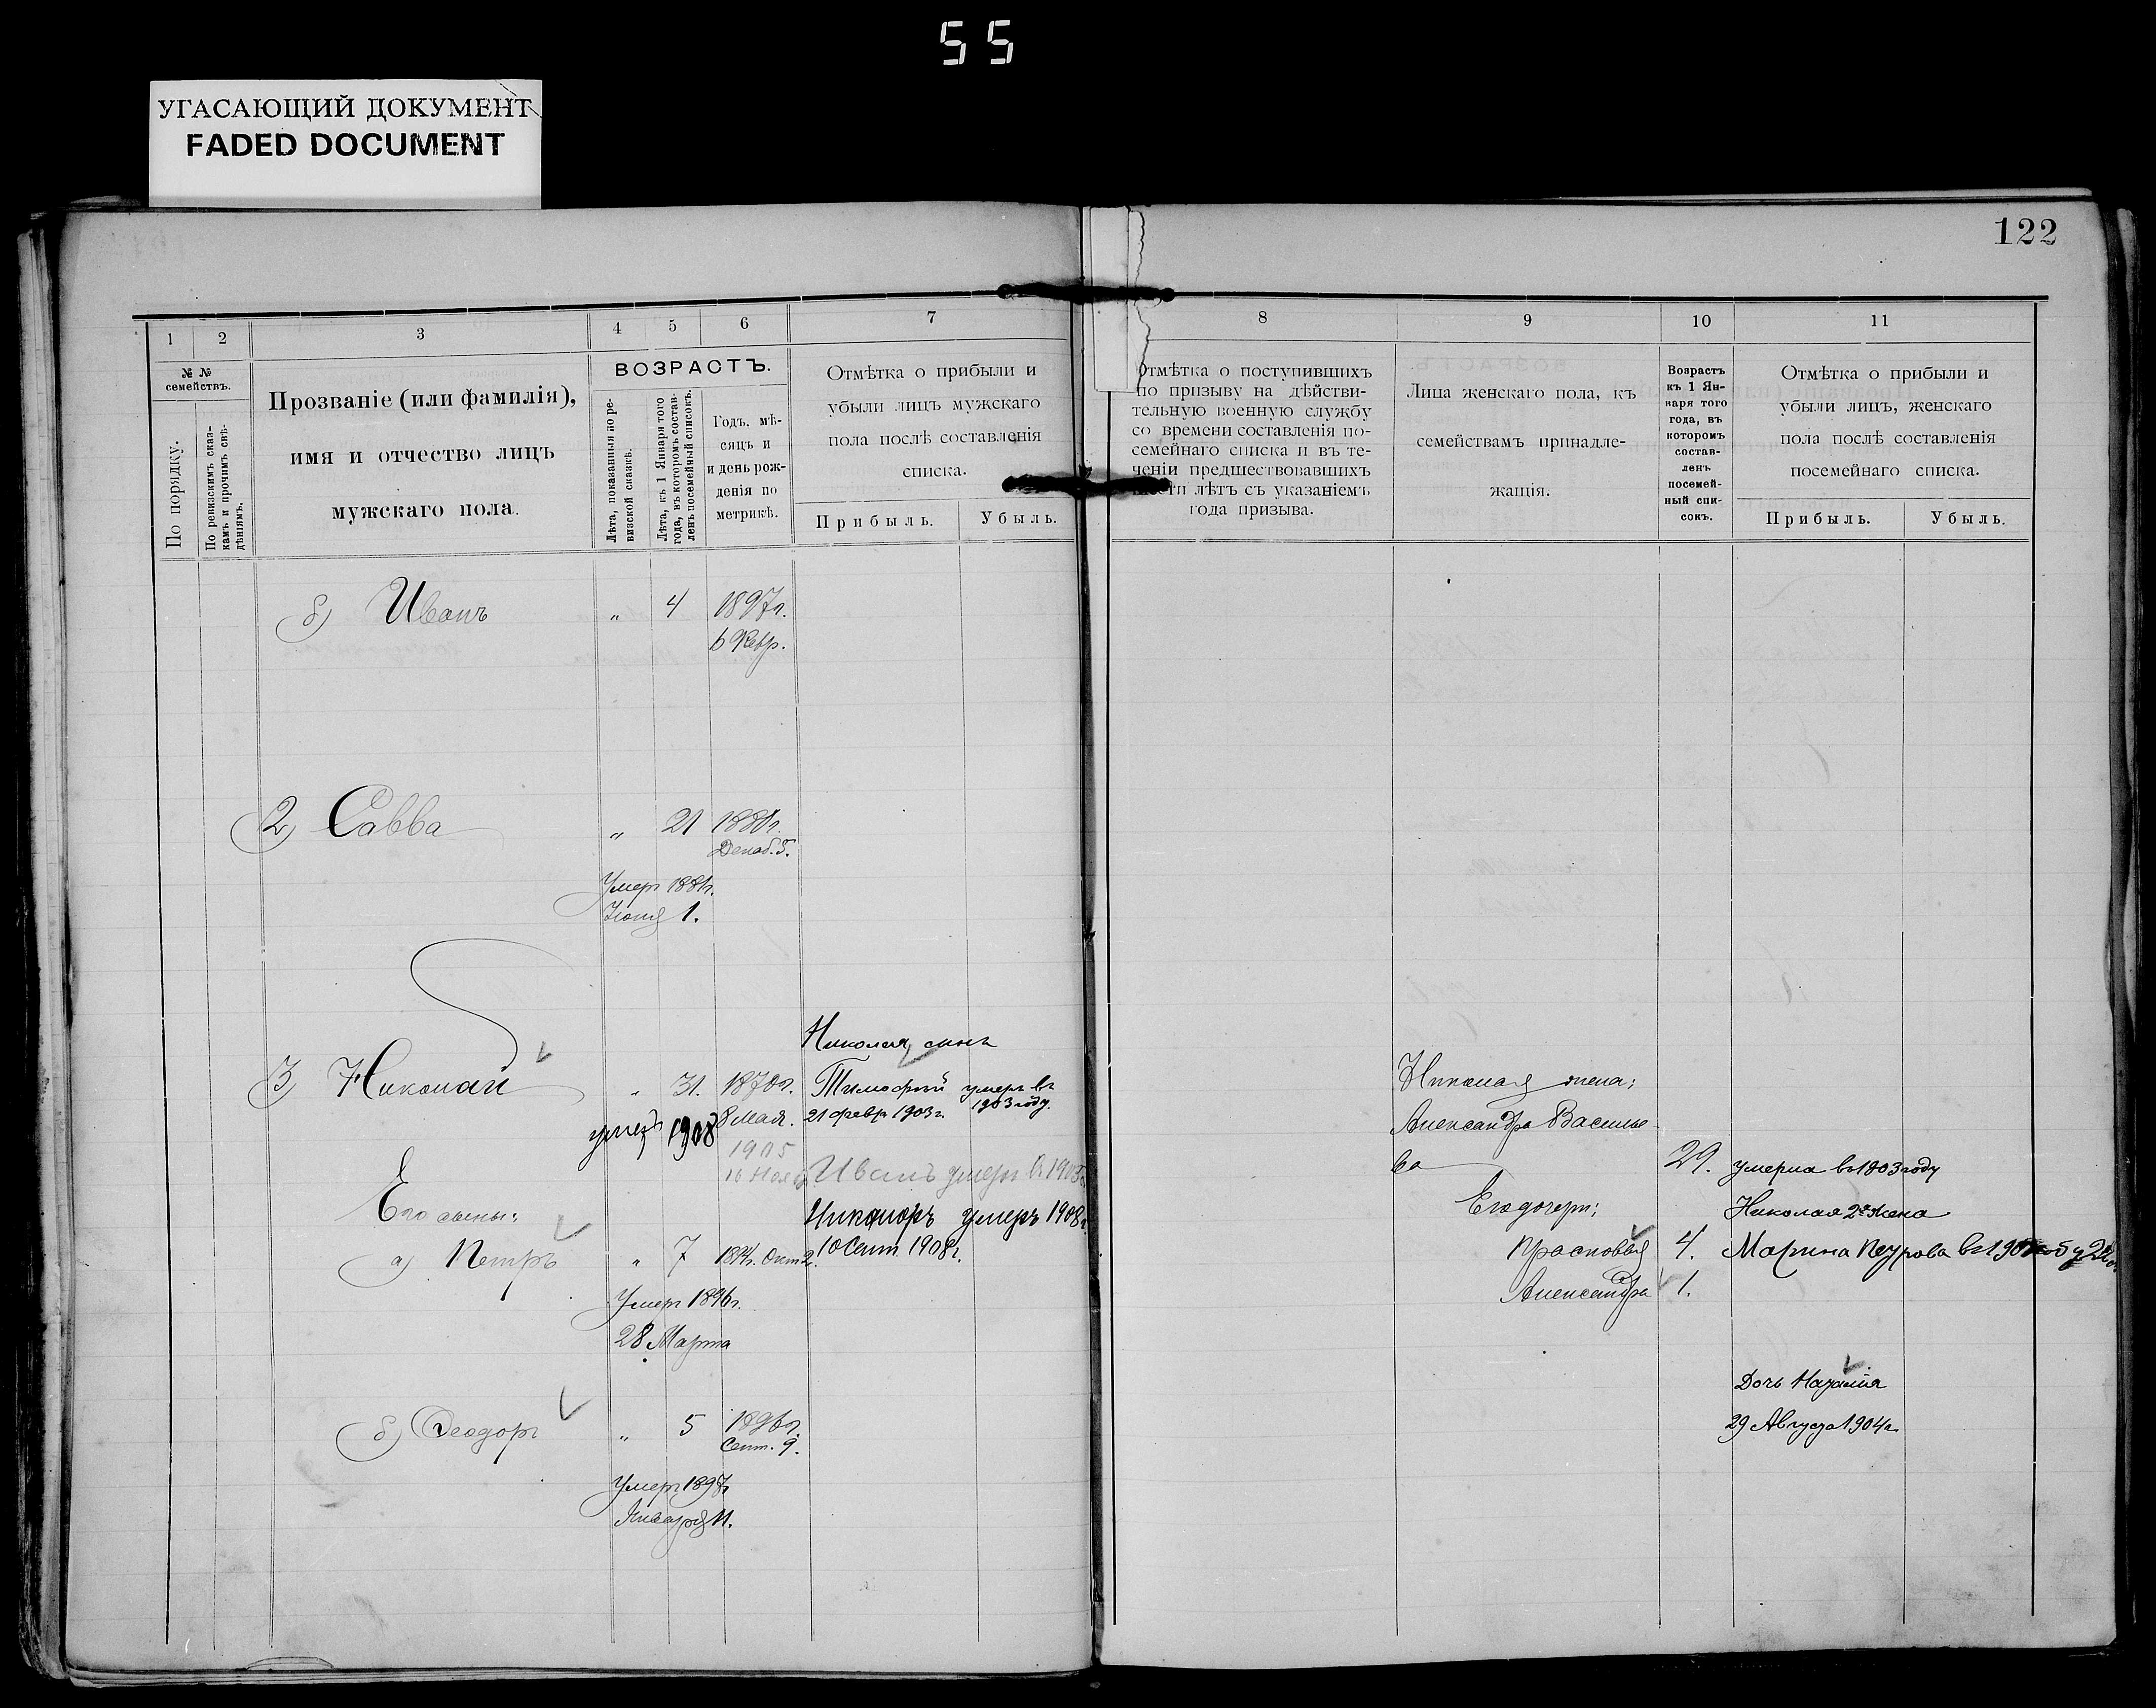 55
УГАСАЮЩИЙ ДОКУМЕНТ
FADED DOCUMENT
122
1 2 3 4 5 6 7
№ №
семействъ.
По порядку.
По ревизскимъ сказ-
камъ и прочимъ свѣ-
дѣніямъ.
Прозваніе (или фамилія),
имя и отчество лицъ
мужскаго пола.
ВОЗРАСТЪ.
Лѣта, показанныя по ре-
визской сказкѣ.
Лѣта, къ 1 Января того
года, въ которомъ состав-
ленъ посемейный списокъ.
Годъ, мѣ-
сяцъ и
и день рож-
денія по
метрикѣ.
Отмѣтка о прибыли и
убыли лицъ мужскаго
пола послѣ составленія
списка.
Прибыль. Убыль.
б) Иванъ " 4 1897г.
6 Февр.
2) Савва " 21 1880г.
Декаб. 5.
Умеръ 1881г.
Іюня 1.
Николая сынъ
3) Николай " 31. 1870г. Тимофей умеръ въ
8 Мая. 21 февр 1903г. 1903 году.
умеръ 1908
1905
10 Нояб. Иванъ умеръ въ 1905
Его сыны: Никаноръ умеръ 1908г
а) Петръ " 7 1894г. Окт 2. 10 Сент 1908г.
Умеръ 1896г.
28 Марта
б) Ѳеодоръ " 5 1896г.
Сент. 9.
Умеръ 1897г
Января 11.
8 9 10 11
Отмѣтка о поступившихъ
по призыву на дѣйстви-
тельную военную службу
со времени составленія по-
семейнаго списка и въ те-
ченіи предшествовавшихъ
шести лѣтъ съ указаніемъ
года призыва.
Лица женскаго пола, къ
семействамъ принадле-
жащія.
Возрастъ
къ 1 Ян-
наря того
года, въ
которомъ
состав-
ленъ
посемей-
ный спи-
сокъ.
Отмѣтка о прибыли и
убыли лицъ, женскаго
пола послѣ составленія
посемейнаго списка.
Прибыль. Убыль.
Николая жена:
Александра Василье-
ва 29. умерла въ 1903 году
Его дочери: Николая 2я жена
Прасковья 4. Марина Петрова въ
Александра 1.
Дочь Наталія
29 Августа 1904г.